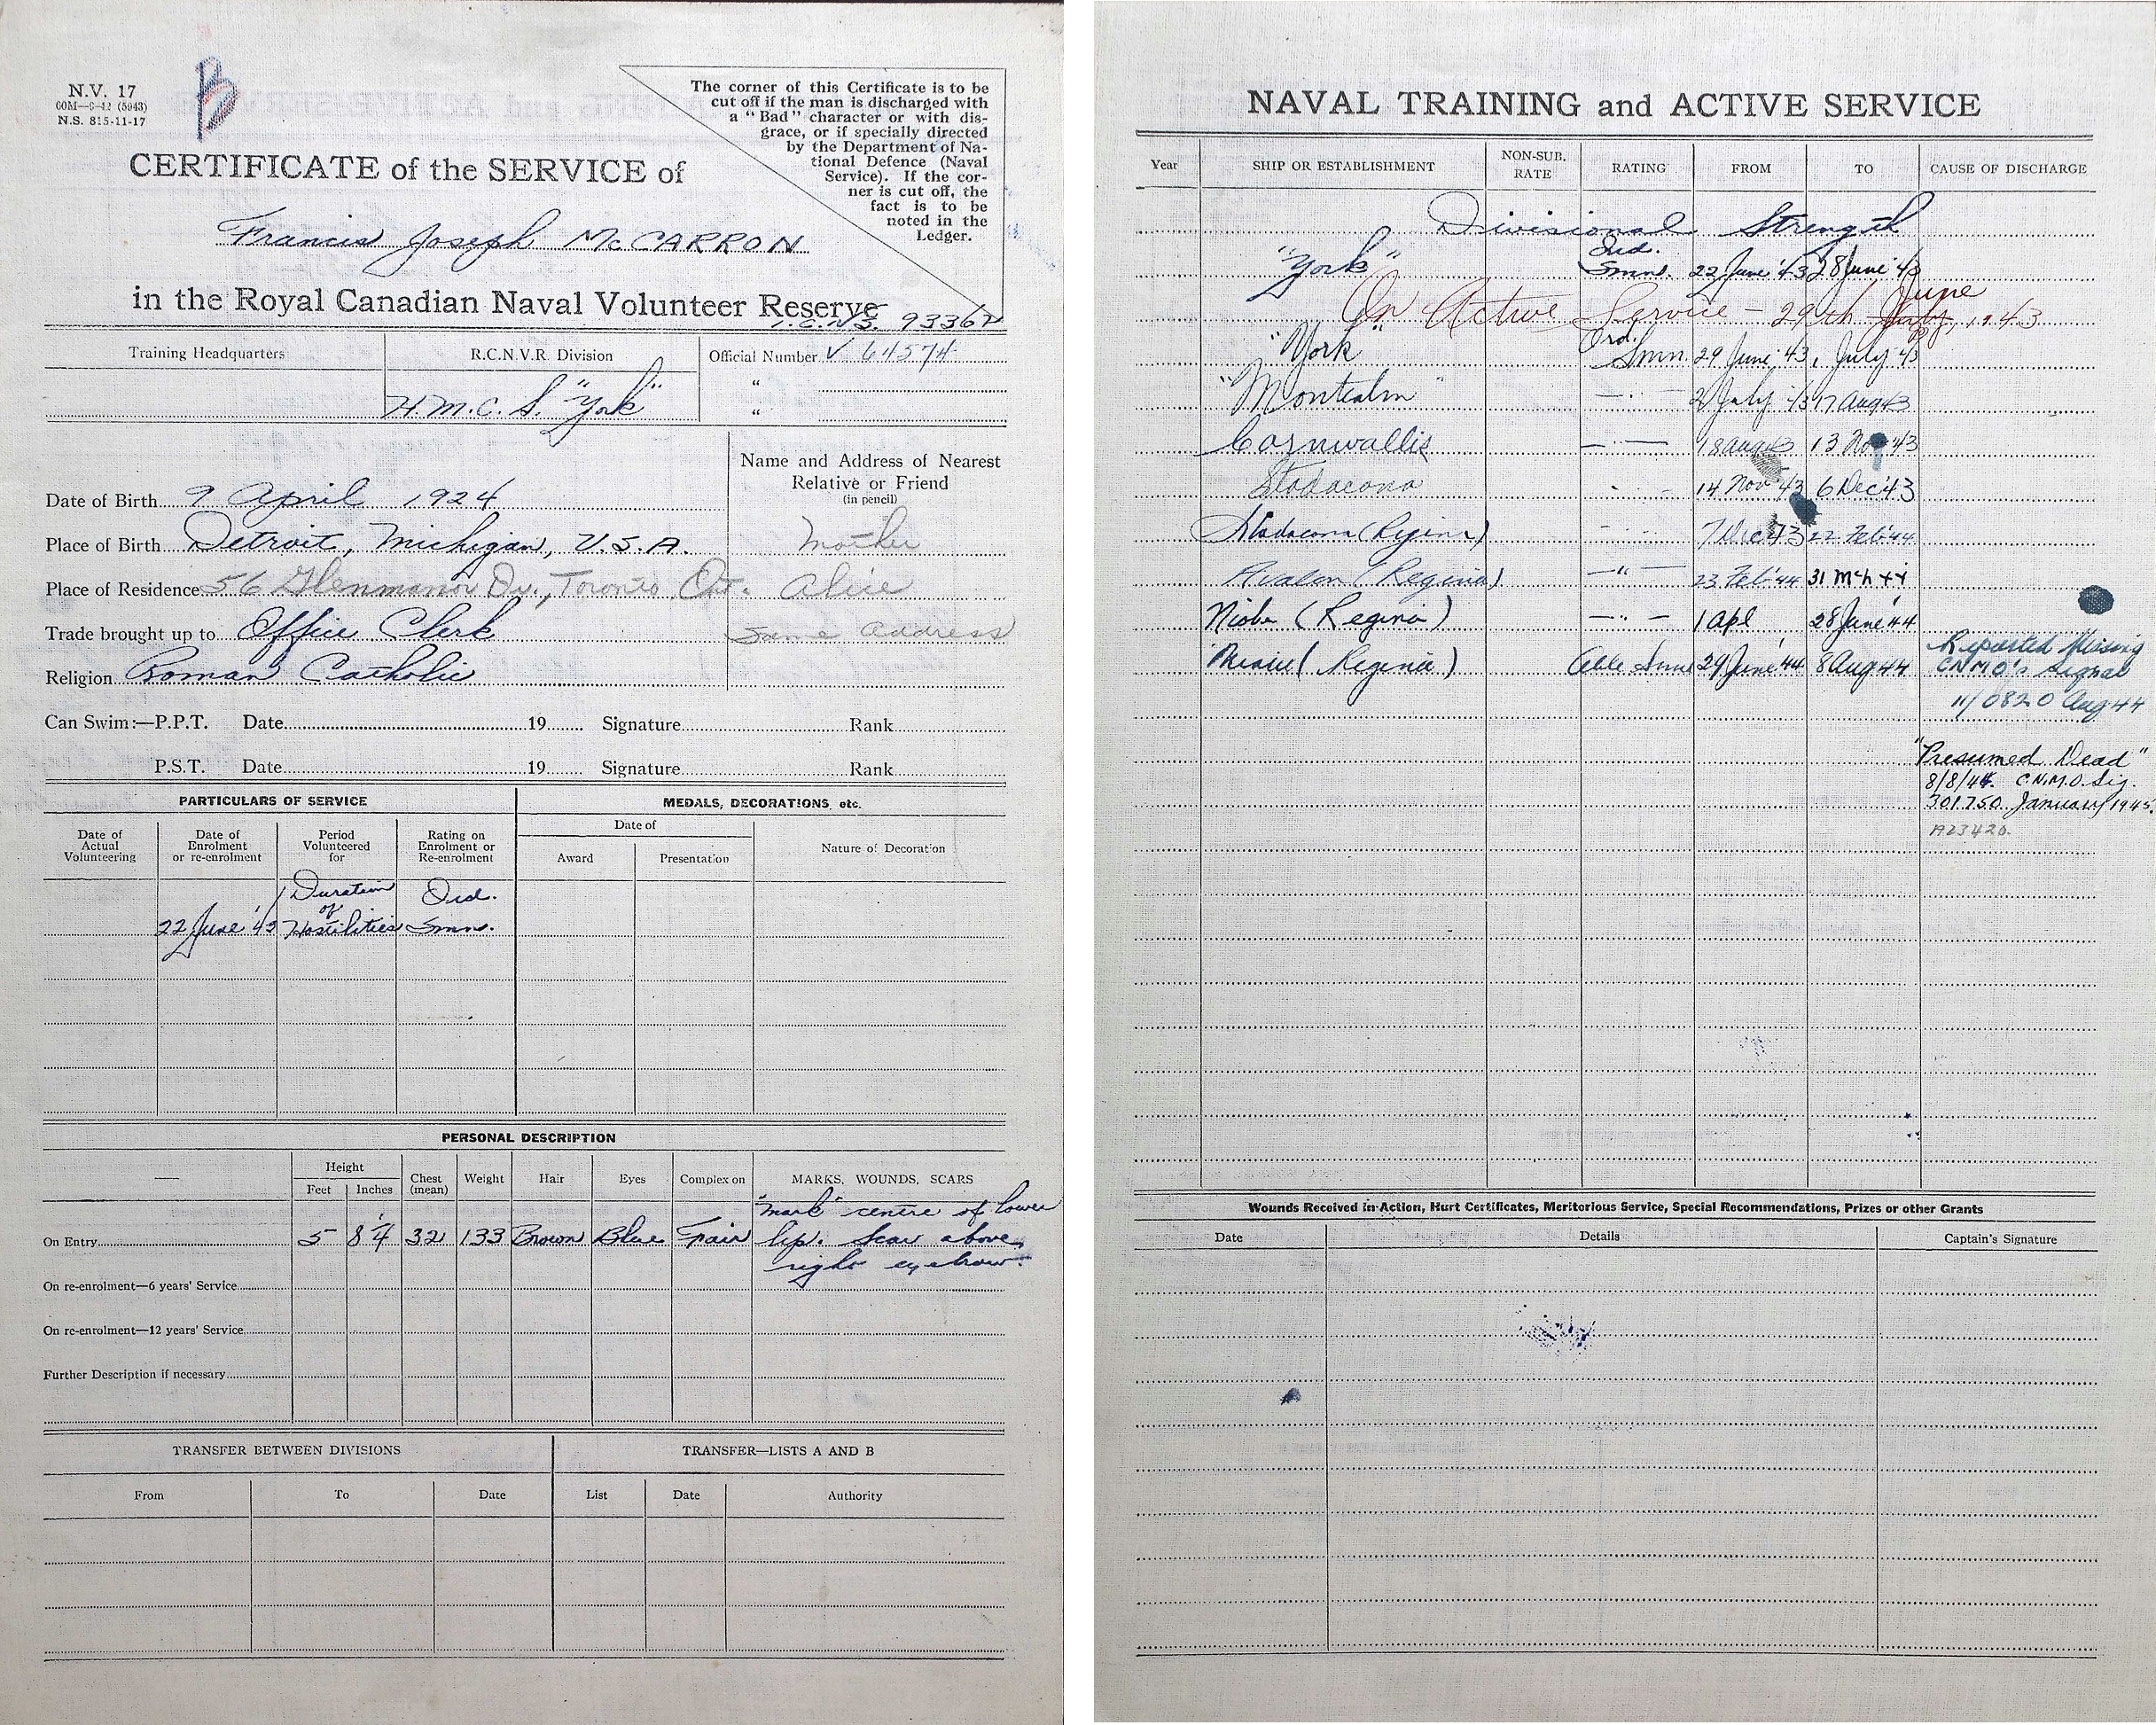 N.V. 17
60M—9-42 (5943)
N.S. 815-11-17
B
The corner of this Certificate is to be
cut off if the man is discharged with
a "Bad" character or with dis-
grace, or if specially directed
by the Department of Na-
tional Defence (Naval
Service). If the cor-
ner is cut off, the
fact is to be
noted in the
Ledger.
CERTIFICATE of the SERVICE of
Francis Joseph McCARRON
in the Royal Canadian Naval Volunteer Reserve
93362
Training Headquarters
R.C.N.V.R. Division
H.M.C.S. "York"
Official Number V 64574
"
"
Date of Birth 9 April 1924
Place of Birth Detroit, Michigan, U.S.A.
Place of Residence 56 Glenmanor Dr., Toronto Ont.
Trade brought up to Office Clerk
Religion Roman Catholic
Name and Address of Nearest
Relative or Friend
(in pencil)
Mother
Alice
Same Address
Can Swim:—P.P.T. Date 19 Signature Rank
P.S.T. Date 19 Signature Rank
PARTICULARS OF SERVICE
Date of Actual Volunteering
Date of Enrolment or re-enrolment
Period Volunteered for
Rating on Enrolment or Re-enrolment
22 June '43 Duration of Hostilities Ord. Smn.
MEDALS, DECORATIONS, etc.
Date of
Award Presentation Nature of Decoration
PERSONAL DESCRIPTION
— Height Chest (mean) Weight Hair Eyes Complexon MARKS, WOUNDS, SCARS
Feet Inches
On Entry 5 8¼ 32 133 Brown Blue Fair "mark" centre of lower
lip. Scar above
right eyebrow.
On re-enrolment—6 years' Service
On re-enrolment—12 years' Service
Further Description if necessary
TRANSFER BETWEEN DIVISIONS
From To Date
TRANSFER—LISTS A AND B
List Date Authority
NAVAL TRAINING and ACTIVE SERVICE
Year SHIP OR ESTABLISHMENT NON-SUB. RATE RATING FROM TO CAUSE OF DISCHARGE
Divisional Strength
"York" Ord. Smn. 22 June '43 28 June '43
On Active Service — 29th July June, 1943
"York" Ord. Smn. 29 June '43 1 July '43
"Montcalm" —"— 2 July '43 17 Aug 43
Cornwallis —"— 18 Aug 43 13 Nov 43
Stadacona - " - 14 Nov '43 6 Dec '43
Stadacona (Regina) - " - 7 Dec 43 22 Feb '44
Avalon (Regina) —"— 23 Feb '44 31 Mch 44
Niobe (Regina) —"— 1 Apl 28 June '44
(Regina) Able Smn 29 June '44 8 Aug 44 Reported Missing
CNMO's Signal
11/0820 Aug 44
"Presumed Dead"
8/8/44. C.N.M.O. Sig.
301750 January 1945.
Wounds Received in Action, Hurt Certificates, Meritorious Service, Special Recommendations, Prizes or other Grants
Date Details Captain's Signature